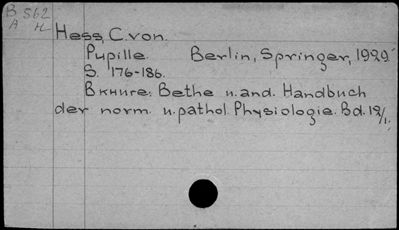 B 562
A H-
Hess, C. von.
Pupille. Berlin, Springer, 1929.
S. 176-186.
Вкниге: Bethe u. and. Handbuch
der norm. u. pathol. Physiologie. Bd. 12/1.